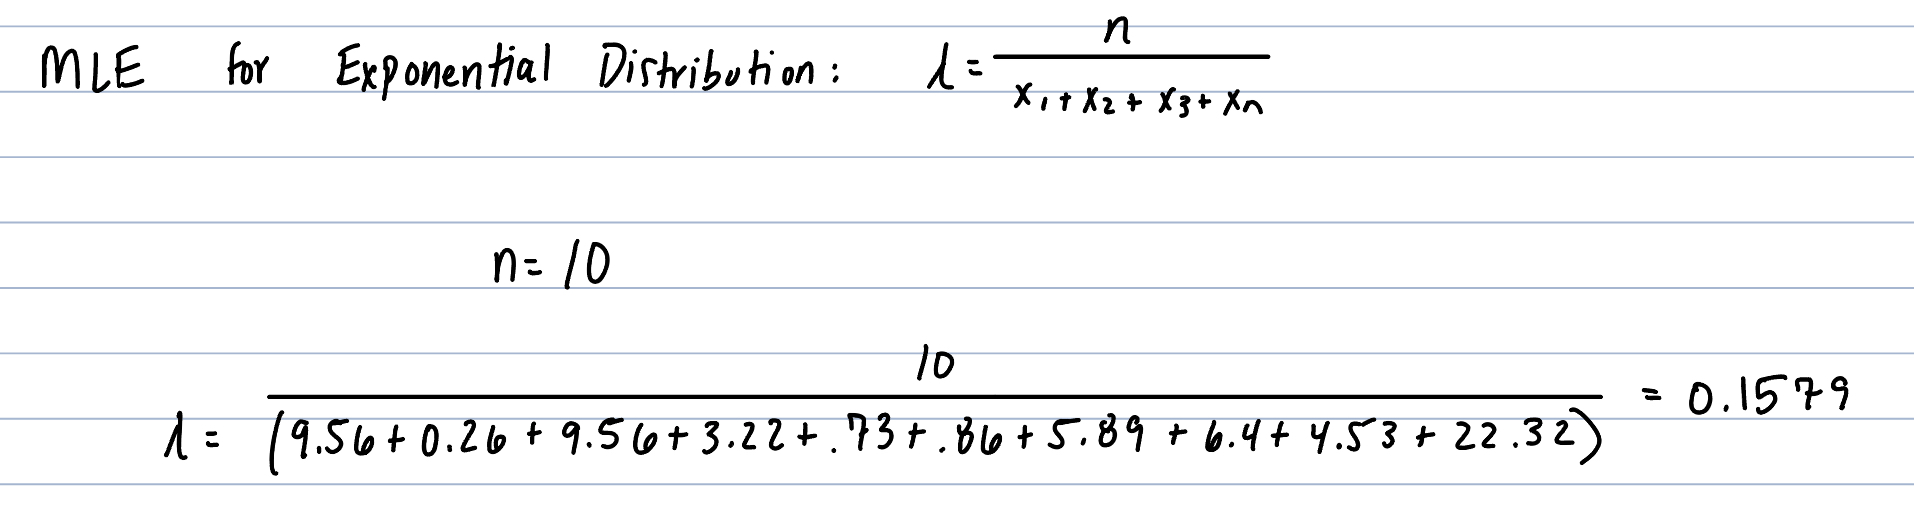 MLE for Exponential Distribution: λ = n / (x₁ + x₂ + x₃ + xₙ)
n = 10
λ = 10 / (9.56 + 0.26 + 9.56 + 3.22 + .73 + .86 + 5.89 + 6.4 + 4.53 + 22.32) = 0.1579